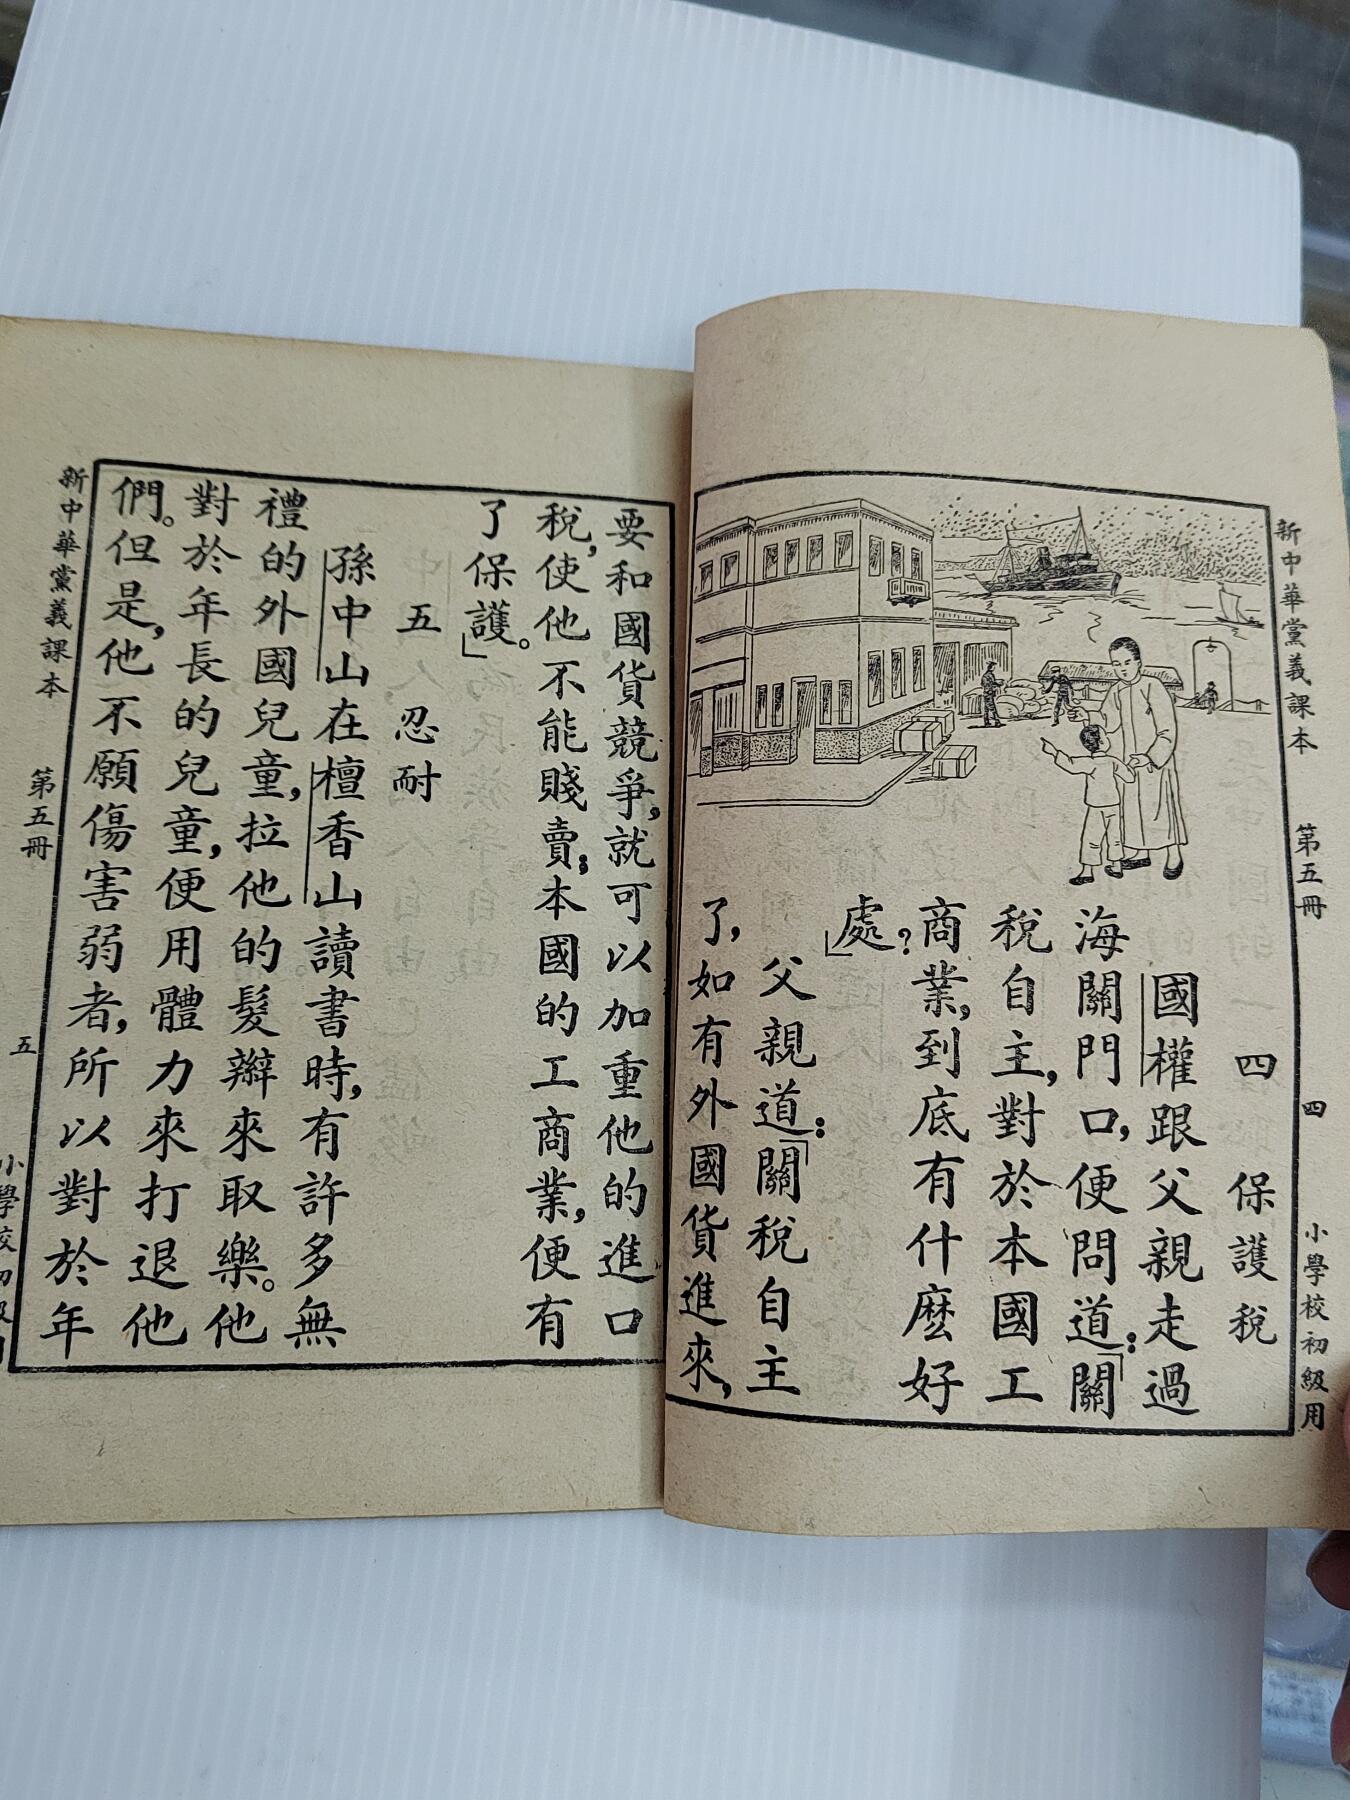 新中華黨義課本 第五冊 四 小學校初級用
四 保護稅
國權跟父親走過
海關門口，便問道：「關
稅自主，對於本國工
商業，到底有什麼好
處？」
父親道：「關稅自主
了，如有外國貨進來，
要和國貨競爭，就可以加重他的進口
稅，使他不能賤賣；本國的工商業，便有
了保護。」
五 忍耐
孫中山在檀香山讀書時，有許多無
禮的外國兒童，拉他的髮辮來取樂。他
對於年長的兒童，便用體力來打退他
們。但是，他不願傷害弱者，所以對於年
新中華黨義課本 第五冊 五 小學校初級用